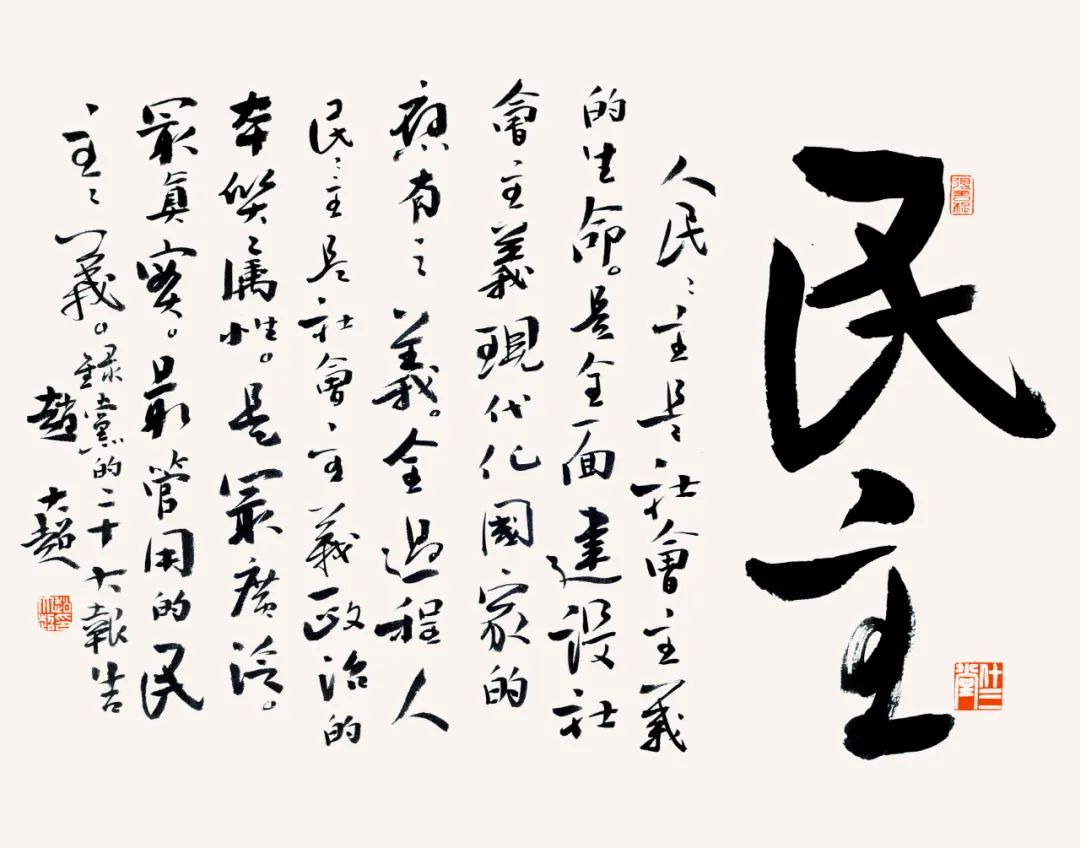 民主
人民〻主是社會主義
的生命。是全面建設社
會主義現代化國家的
應有之義。全過程人
民〻主是社會主義政治的
本質屬性。是最廣泛。
最真實。最管用的民
主〻義。錄黨的二十大報告
趙大超